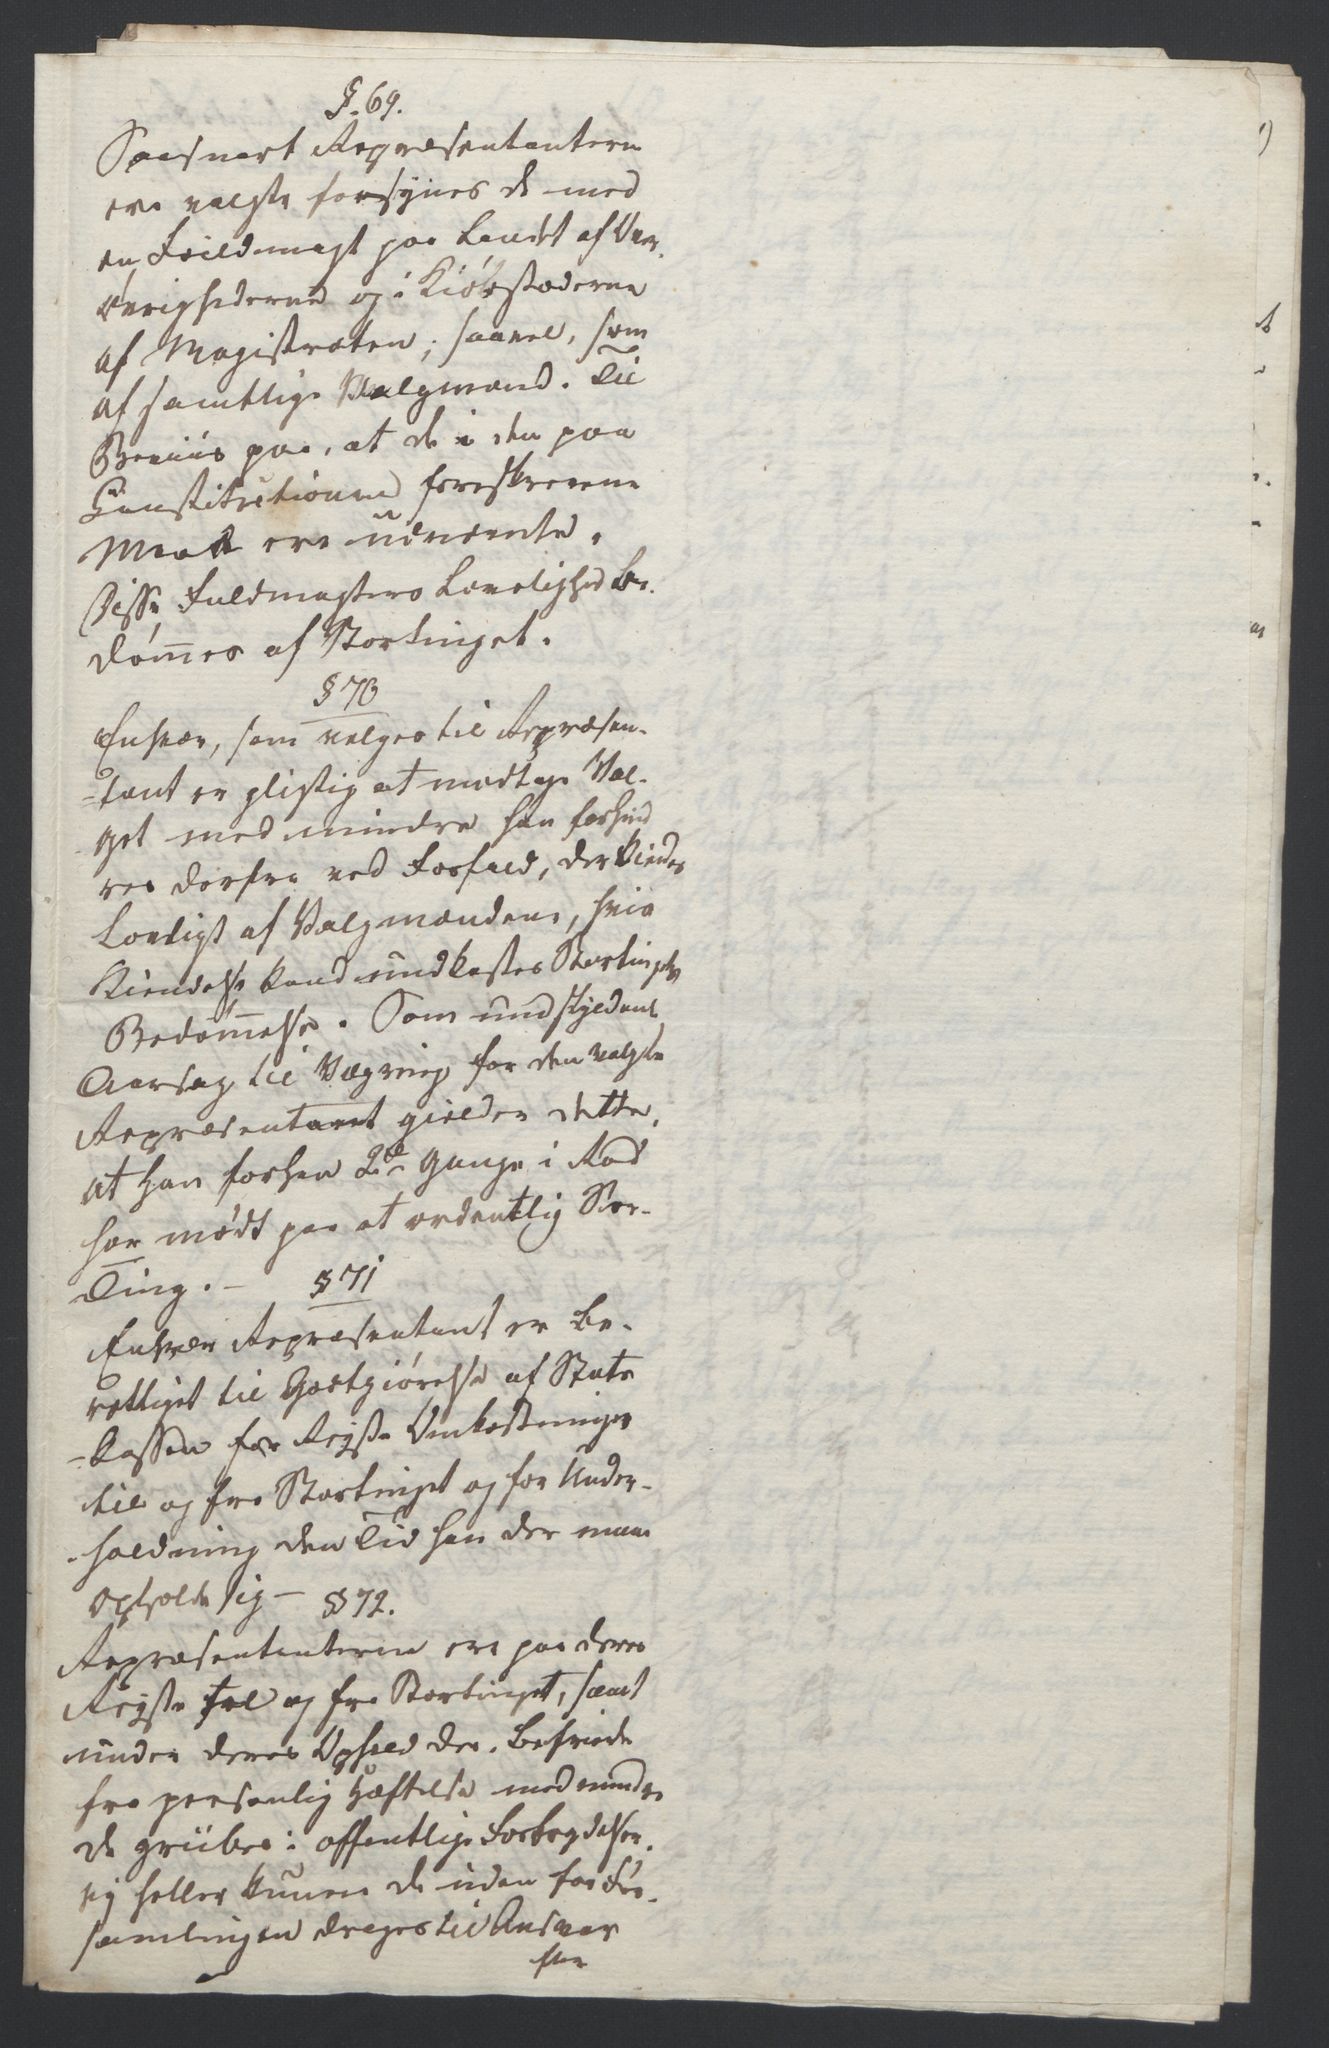 §. 69.
Saasnart Repræsentanterne
ere valgte forsynes de med
en Fuldmagt paa Landet af Over
øvrighederne og i Kiøbstæderne
af Magistraten, saavel, som
af samtlige Valgmænd. Til
Beviis paa, at de i den paa
Constitutionen foreskrevene
Maade ere udnævnte.
Disse Fuldmagters Lovelighed be-
dømes af Stortinget.
§ 70
Enhver, som vælges til Repræsen-
-tant er pligtig at modtage Val-
get med mindre han forhind
res derfra ved Forfald, der kiendes
Lovligt af Valgmændene, hvis
Kiendelse kand undkastes Stortingets
Bedømelse. Som undskyldende
Aarsag til Vægring for den valgte
Repræsentant gielder dette,
at han forhen 2de Gange i Rad
har mødt paa et ordentlig Stor-
Ting. - § 71
Enhver Repræsentant er be-
rettiget til Godtgiørelse af Stats
-kassen for Reyse Omkostninger
til og fra Stortinget og for Under-
-holdning den Tid han der maae
opholde sig - § 72.
Repræsentanterne ere paa deres
Reyse til og fra Stortinget, samt
under deres Ophold der, befriede
fra personlig Hæftelse med mindre
de gribes i offentlige Forbrydelser,
ey heller kunne de uden for For-
samlingen drages til Ansvar
for